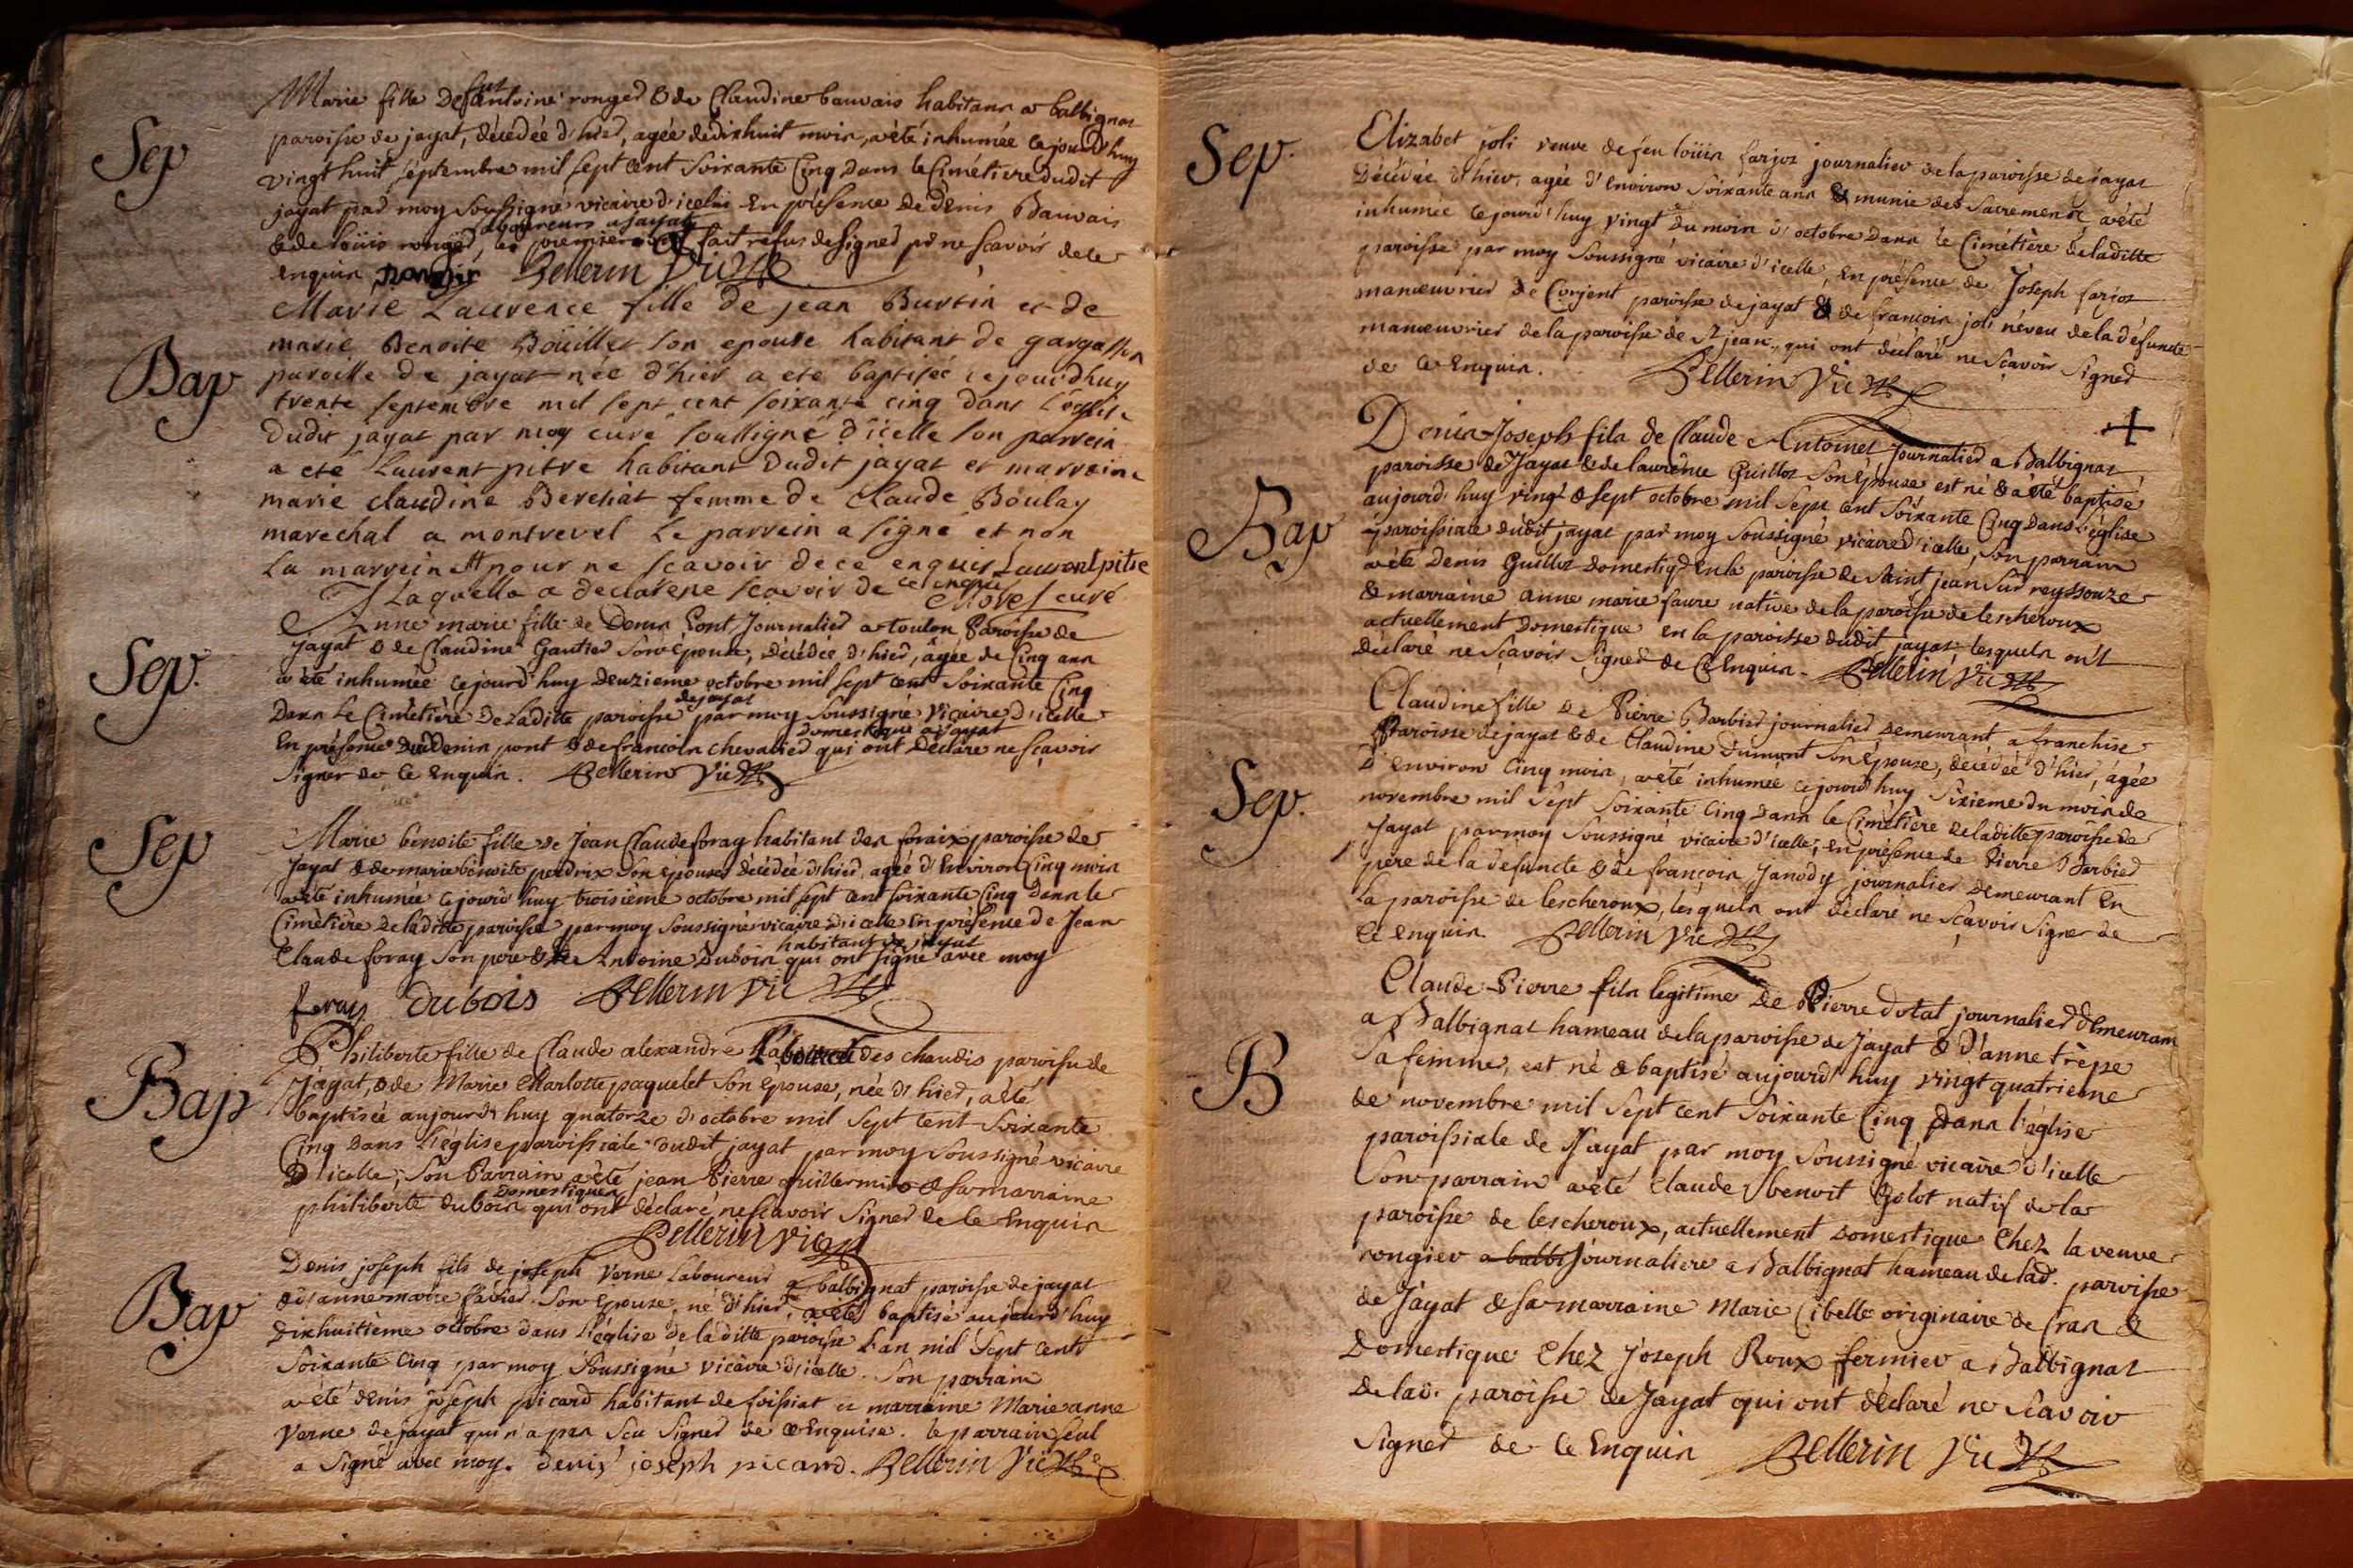 Sep
Marie fille de feu antoine ronger & de Claudine bauvais habitans a balbignat
paroisse de jayat, décédée d'hier, agée de dixhuit mois, a été inhumée ce jourd'huy
vingt huit septembre mil sept cent soixante cinq dans le Cimétiere dudit
jayat par moy soussigné vicaire d'icelui en présence de denis Bauvais
& de loüis ronger, laboureurs a jayat les fait refus de signer pr ne scavoir de ce
enquis Pellerin Vic
Bap
Marie Laurence fille de jean Burtin et de
marie Benoite Boüillet son epouse habitant de
paroisse de jayat née d'hier a eté baptisée cejourdhuy
trente septembre mil sept cent soixante cinq dans l'eglise
dudit jayat par moy curé soussigné d'icelle son parrein
a eté Laurent pitre habitant dudit jayat et marreine
marie claudine Berchat femme de Claude Boulay
marechal a montrevel le parrein a signé et non
la marreine pour ne scavoir de ce enquis Laurent pitre
Laquelle a declare ne scavoir de ce enquise
Morel curé
Sep.
Anne marie fille de Denis Pont Journalier a toulon Paroisse de
jayat & de Claudine Gautier son épouse, décédée d'hier, âgée de Cinq ans
a été inhumée cejourd'huy deuzieme octobre mil sept cent soixante Cinq
dans le Cimétière de laditte paroisse de jayat par moy soussigné vicaire d'icelle
En présence dud denis pont & de francois chevalier domestique a jayat qui ont déclaré ne scavoir
signer de ce enquis. Pellerin Vic
Sep
Marie benoite fille de Jean Claude foray habitant des foraix paroisse de
Jayat & de marie benoite perdrix son épouse décédée d'hier, agée d'Environ Cinq mois
a été inhumée cejourd'huy troisième octobre mil sept cent soixante Cinq dans le
Cimétière de laditte paroisse par moy soussigné vicaire d'icelle En présence de Jean
Claude foray son pere & de Antoine Dubois habitant de jayat qui ont signé avec moy
foray Dubois Pellerin Vic
Bap
Philiberte fille de Claude alexandre des chaudis paroisse de
Jayat, & de Marie Charlotte paquelet son épouse, née d'hier, a été
baptisée aujourd'huy quatorze d'octobre mil sept cent soixante
Cinq dans l'église paroissiale dudit jayat par moy soussigné vicaire
d'icelle; son Parrain a été jean Pierre guillermin & sa marraine
philiberte dubois domestiques qui ont déclaré ne scavoir signer de ce Enquis
Pellerin Vic
Bap
Denis joseph fils de joseph Verne Laboureur a balbignat paroisse de jayat
& d'anne marie favier son épouse, né d'hier, a eté baptisé aujourd'huy
dixhuitième octobre dans l'église de laditte paroisse L'an mil sept cents
soixante Cinq par moy soussigné vicaire d'icelle. Son parrain
a été denis joseph picard habitant de foissiat et marraine Marie anne
Verne de jayat qui n'a pas scu signer de ce Enquise. le parrain seul
a signé avec moy. denis joseph picard. Pellerin Vic
Sep.
Elizabet joli veuve de feu loüis farjos journalier de la paroisse de jayat
décédée d'hier, agée d'environ soixante ans & munie des sacremens, a été
inhumée cejourd'huy vingt du mois d'octobre dans le Cimétière de laditte
paroisse par moy soussigné vicaire d'icelle, en présence de Joseph farjos
manœuvrier de Corjent paroisse de jayat & de francois joli néveu de la défuncte
manœuvrier de la paroisse de St jean, qui ont déclaré ne scavoir signer
de ce enquis. Pellerin Vic
+
Bap
Denis Joseph fils de Claude Antoinet Journalier a Balbignat
paroisse de Jayat & de laurence Guillot son épouse est né & a été baptisé
aujourd'huy vingt & sept octobre mil sept cent soixante cinq dans l'église
paroissiale dudit jayat par moy soussigné vicaire d'icelle, son parrain
a été Denis Guillot domestiq. en la paroisse de saint jean sur reyssouze
& marraine anne marie faure native de la paroisse de lescheroux
actuellement domestique en la paroisse dudit jayat lesquels ont
déclaré ne sçavoir signer de ce Enquis. Pellerin Vic
Sep.
Claudine fille de Pierre Barbier journalier demeurant a franchise
Paroisse de jayat & de Claudine dumont son épouse, décédée d'hier, âgée
d'environ Cinq mois, a été inhumée cejourd'huy sixieme du mois de
novembre mil sept soixante Cinq dans le Cimétière de laditte paroisse de
Jayat par moy soussigné vicaire d'icelle, en présence de Pierre Barbier
père de la défuncte & de françois Janody journalier demeurant En
la paroisse de lescheroux, lesquels ont déclaré ne scavoir signer de
ce enquis Pellerin Vic
B
Claude Pierre fils legitime de Pierre dotal journalier demeurant
a Balbignat hameau de la paroisse de Jayat & d'anne trepe
sa femme, est né & baptisé aujourd'huy vingt quatrieme
de novembre mil sept cent soixante Cinq dans l'église
paroissiale de Jayat par moy soussigné vicaire d'icelle
son parrain a été Claude benoit Golot natif de la
paroisse de lescheroux, actuellement domestique Chez la veuve
rongier a balbi journaliere a Balbignat hameau de lad. paroisse
de Jayat & sa marraine Marie Cibelle originaire de Cras &
Domestique Chez Joseph Roux fermier a Balbignat
de lad. paroisse de Jayat qui ont déclaré ne scavoir
signer de ce Enquis Pellerin Vic